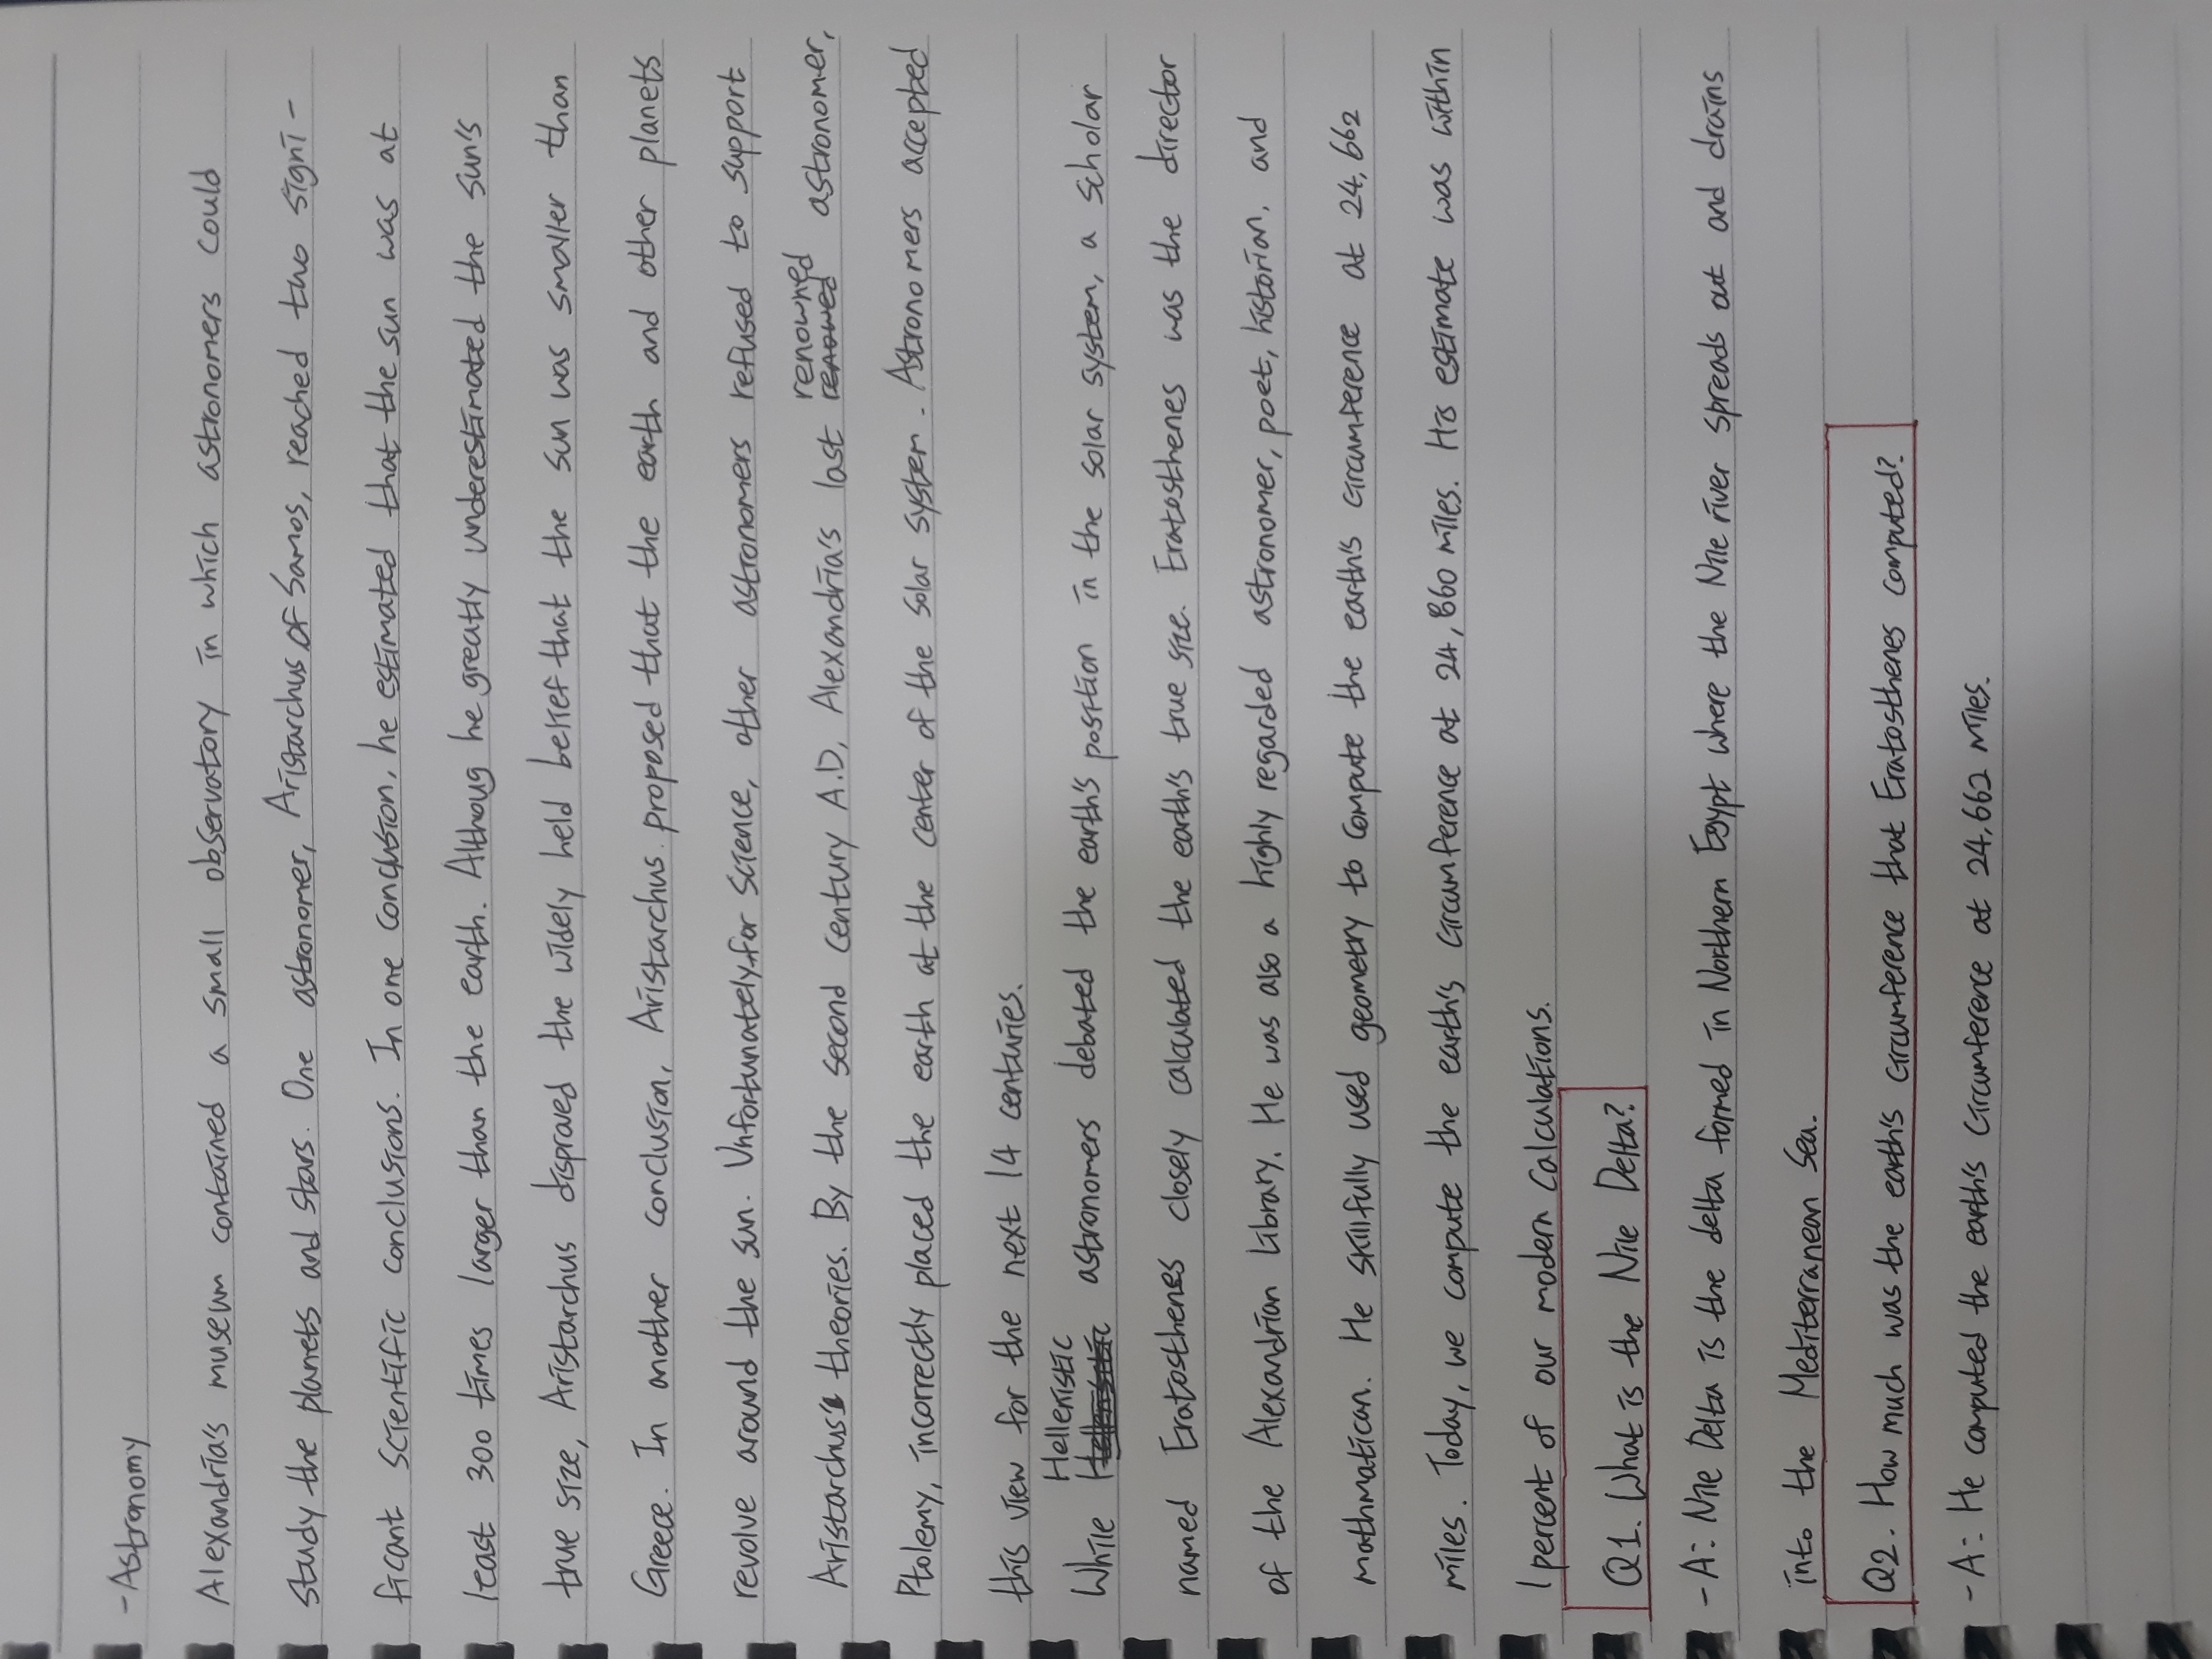 - Astronomy
Alexandria's museum contained a small observatory in which astronomers could
study the planets and stars. One astronomer, Aristarchus of Samos, reached two signi-
ficant scientific conclusions. In one conclusion, he estimated that the sun was at
least 300 times larger than the earth. Althoug he greatly underestimated the sun's
true size, Aristarchus disproved the widely held belief that the sun was smaller than
Greece. In another conclusion, Aristarchus proposed that the earth and other planets
revolve around the sun. Unfortunately for science, other astronomers refused to support
Aristarchus's theories. By the second century A.D, Alexandria's last renowned astronomer,
Ptolemy, incorrectly placed the earth at the center of the solar system. Astronomers accepted
this view for the next 14 centuries.
While Hellenistic astronomers debated the earth's position in the solar system, a scholar
named Eratosthenes closely calculated the earth's true size. Eratosthenes was the director
of the Alexandrian Library. He was also a highly regarded astronomer, poet, historian, and
mathmatican. He skillfully used geometry to compute the earth's circumference at 24,662
miles. Today, we compute the earth's circumference at 24,860 miles. His estimate was within
1 percent of our modern calculations.
Q1. What is the Nile Delta?
- A: Nile Delta is the delta formed in Northern Egypt where the Nile river spreads out and drains
into the Mediterranean Sea.
Q2. How much was the earth's circumference that Eratosthenes computed?
- A: He computed the earth's circumference at 24,662 miles.